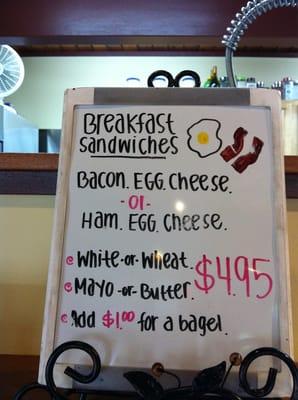 Breakfast
Sandwiches
Bacon. Egg. Cheese.
-or-
Ham. Egg. Cheese.
White-or-Wheat.
Mayo-or-Butter.
$4.95
Add $1.00 for a bagel.